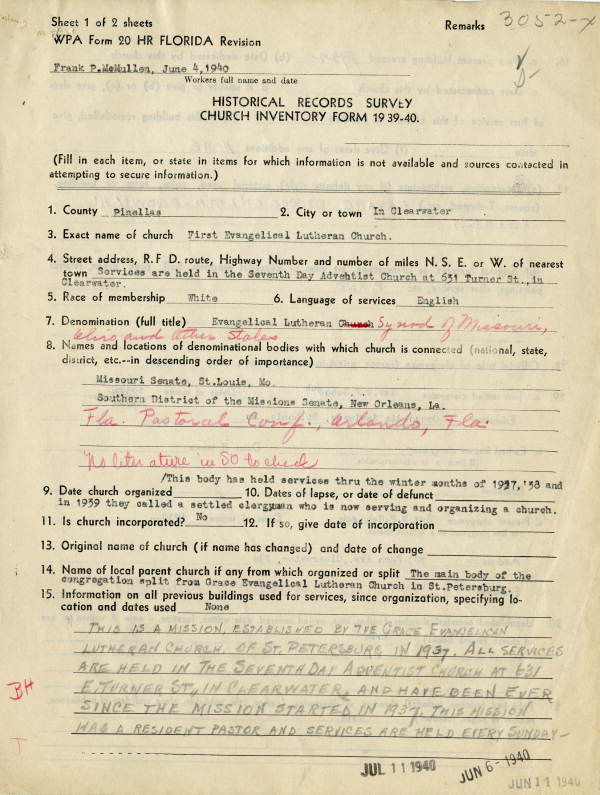 Sheet 1 of 2 sheets
Remarks 3052-x
WPA Form 20 HR FLORIDA Revision
Frank P. McMullen, June 4, 1940
Workers full name and date
HISTORICAL RECORDS SURVEY
CHURCH INVENTORY FORM 1939-40.
(Fill in each item, or state in items for which information is not available and sources contacted in
attempting to secure information.)
1. County Pinellas 2. City or town In Clearwater
3. Exact name of church First Evangelical Lutheran Church.
4. Street address, R.F D. route, Highway Number and number of miles N. S. E. or W. of nearest
town Services are held in the Seventh Day Adventist Church at 631 Turner St., in
Clearwater.
5. Race of membership White 6. Language of services English
7. Denomination (full title) Evangelical Lutheran Church Synod of Missouri,
Ohio and other States
8. Names and locations of denominational bodies with which church is connected (national, state,
district, etc.--in descending order of importance)
Missouri Senate, St.Louie, Mo.
Southern District of the Missions Senate, New Orleans, La.
Fla. Pastoral Conf., Orlando, Fla.
No literature in SO to check
/This body has held services thru the winter months of 1937, '38 and
9. Date church organized 10. Dates of lapse, or date of defunct
in 1939 they called a settled clergyman who is now serving and organizing a church.
11. Is church incorporated? No 12. If so, give date of incorporation
13. Original name of church (if name has changed) and date of change
14. Name of local parent church if any from which organized or split The main body of the
congregation split from Grace Evangelical Lutheran Church in St.Petersburg.
15. Information on all previous buildings used for services, since organization, specifying lo-
cation and dates used None
THIS IS A MISSION, ESTABLISHED BY THE GRACE EVANGELICAN
LUTHERAN CHURCH, OF ST. PETERSBURG, IN 1937. ALL SERVICES
ARE HELD IN THE SEVENTH DAY ADVENTIST CHURCH AT 631
E. TURNER ST., IN CLEARWATER, AND HAVE BEEN EVER
BH
SINCE THE MISSION STARTED IN 1937. THIS MISSION
HAS A RESIDENT PASTOR AND SERVICES ARE HELD EVERY SUNDAY-
JUL 11 1940
JUN 6- 1940
JUN 11 1940